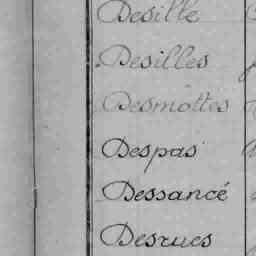 Desille
Desilles
Desmottes
Despas
Dessancé
Desrues